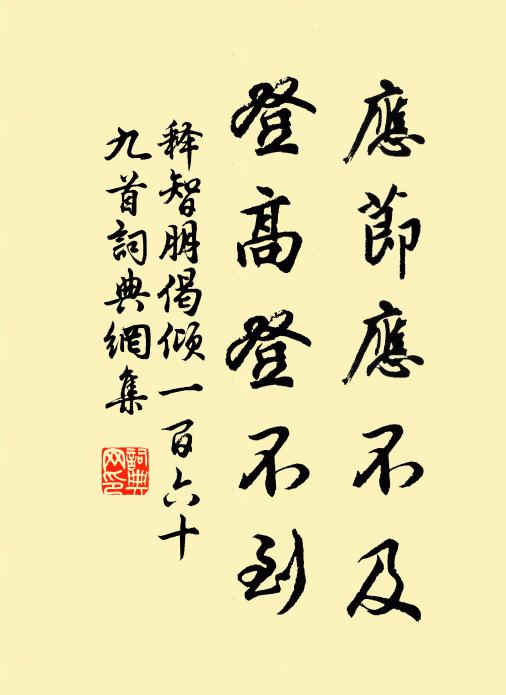 應節應不及
登高登不到
释智朋偈倾一百六十
九首詞典網集
詞典
网印